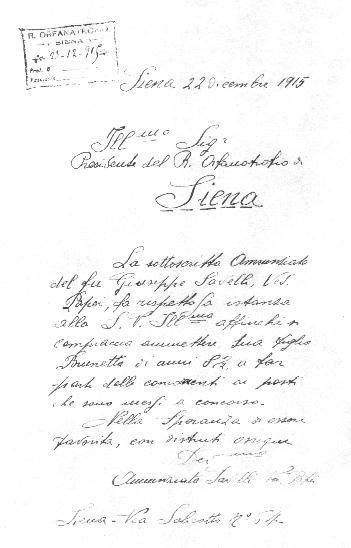 R. ORFANATROFIO
SIENA
23-12-915
Siena 22 dicembre 1915
Ill.mo Sigr
Presidente del R. Orfanotrofio di
Siena
La sottoscritta Annunziata
del fu Giuseppe Savelli, Ved.
Papei, fa rispettosa istanza
alla S. V. Ill.ma affinchè si
compiaccia ammettere sua figlia
Brunetta di anni 8½ a far
parte delle concorrenti ai posti
che sono messi a concorso.
Nella Speranza di essere
favorita, con distinti ossequi
Dev.ma
Annunziata Savelli ved. Papei
Siena - Via Salicotto No